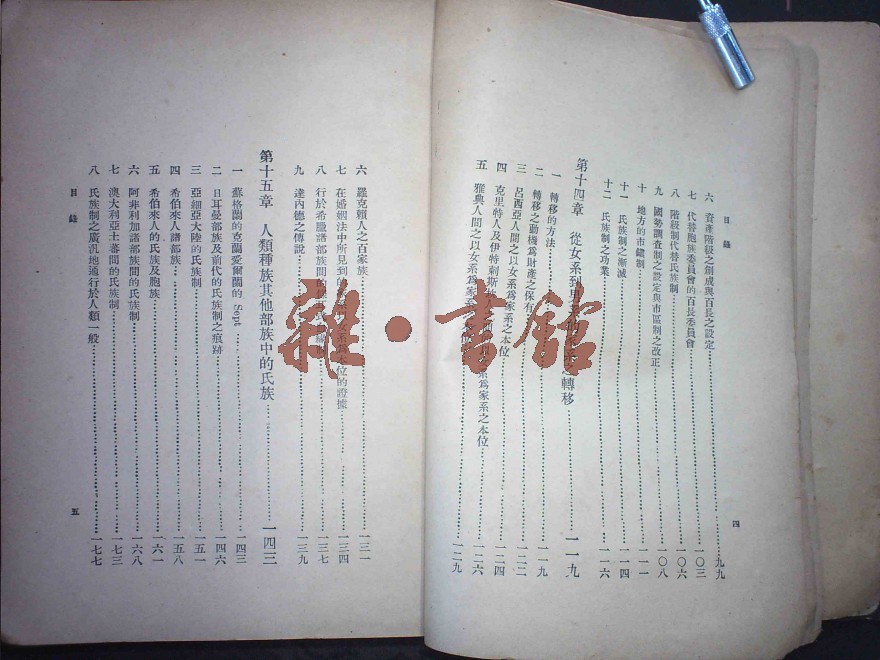 目錄
六　資產階級之創成與百長之設定……九九
七　代替胞族委員會的百長委員會……一〇三
八　階級制代替氏族制……一〇六
九　國勢調查制之設定與市區制之改正……一〇八
十　地方的市鎮制……一一一
十一　氏族制之漸滅……一一四
十二　氏族制之功業……一一六
第十四章　從女系到男系轉移……一一九
一　轉移的方法……一一九
二　轉移之動機爲財產之保有……一一九
三　呂西亞人間之以女系爲家系之本位……一二二
四　克里特人及伊特剌斯系爲家系之本位……一二四
五　雅典人間之以女系爲家系……一二六
……一二九
四
六　羅克賴人之百家族……一三一
七　在婚姻法中所見到的本位的證據……一三四
八　行於希臘諸部族間的……一三七
九　達內德之傳說……一三九
第十五章　人類種族其他部族中的氏族……一四三
一　蘇格蘭的克蘭愛爾蘭的 Sept……一四三
二　日耳曼部族及前代的氏族制之痕跡……一四六
三　亞細亞大陸的氏族制……一五一
四　希伯來人諸部族……一五八
五　希伯來人的氏族及胞族……一六一
六　阿非利加諸部族間的氏族制……一六八
七　澳大利亞土番間的氏族制……一七三
八　氏族制之廣汎地通行於人類一般……一七七
目錄
五
雜·書館